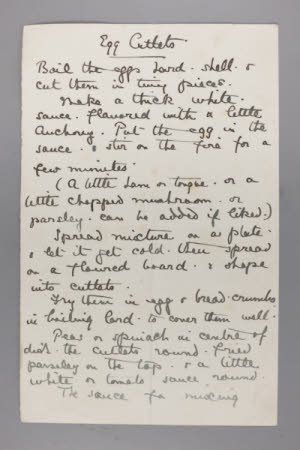 Egg Cutlets
Boil the eggs hard. shell. &
cut them in tiny pieces.
Make a thick white.
sauce. flavored with a little
Anchovy. Put the egg in the
sauce. & stir on the fire for a
few minutes.
(A little ham or tongue. or a
little chopped mushroom. or
parsley. can be added if liked.)
Spread mixture on a plate.
& let it get cold. then spread
on a floured board. & shape
into cutlets.
Fry them in egg & bread-crumbs
in boiling lard. to cover them well.
Peas or spinach in centre of
dish. the cutlets round. fried
parsley on the top. & a little
white or tomato sauce round.
The sauce for mixing